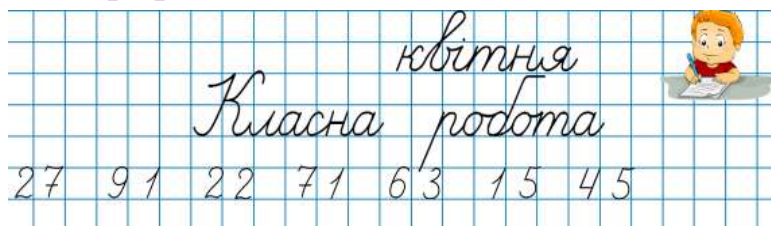 квітня
Класна робота
27 91 22 71 63 15 45